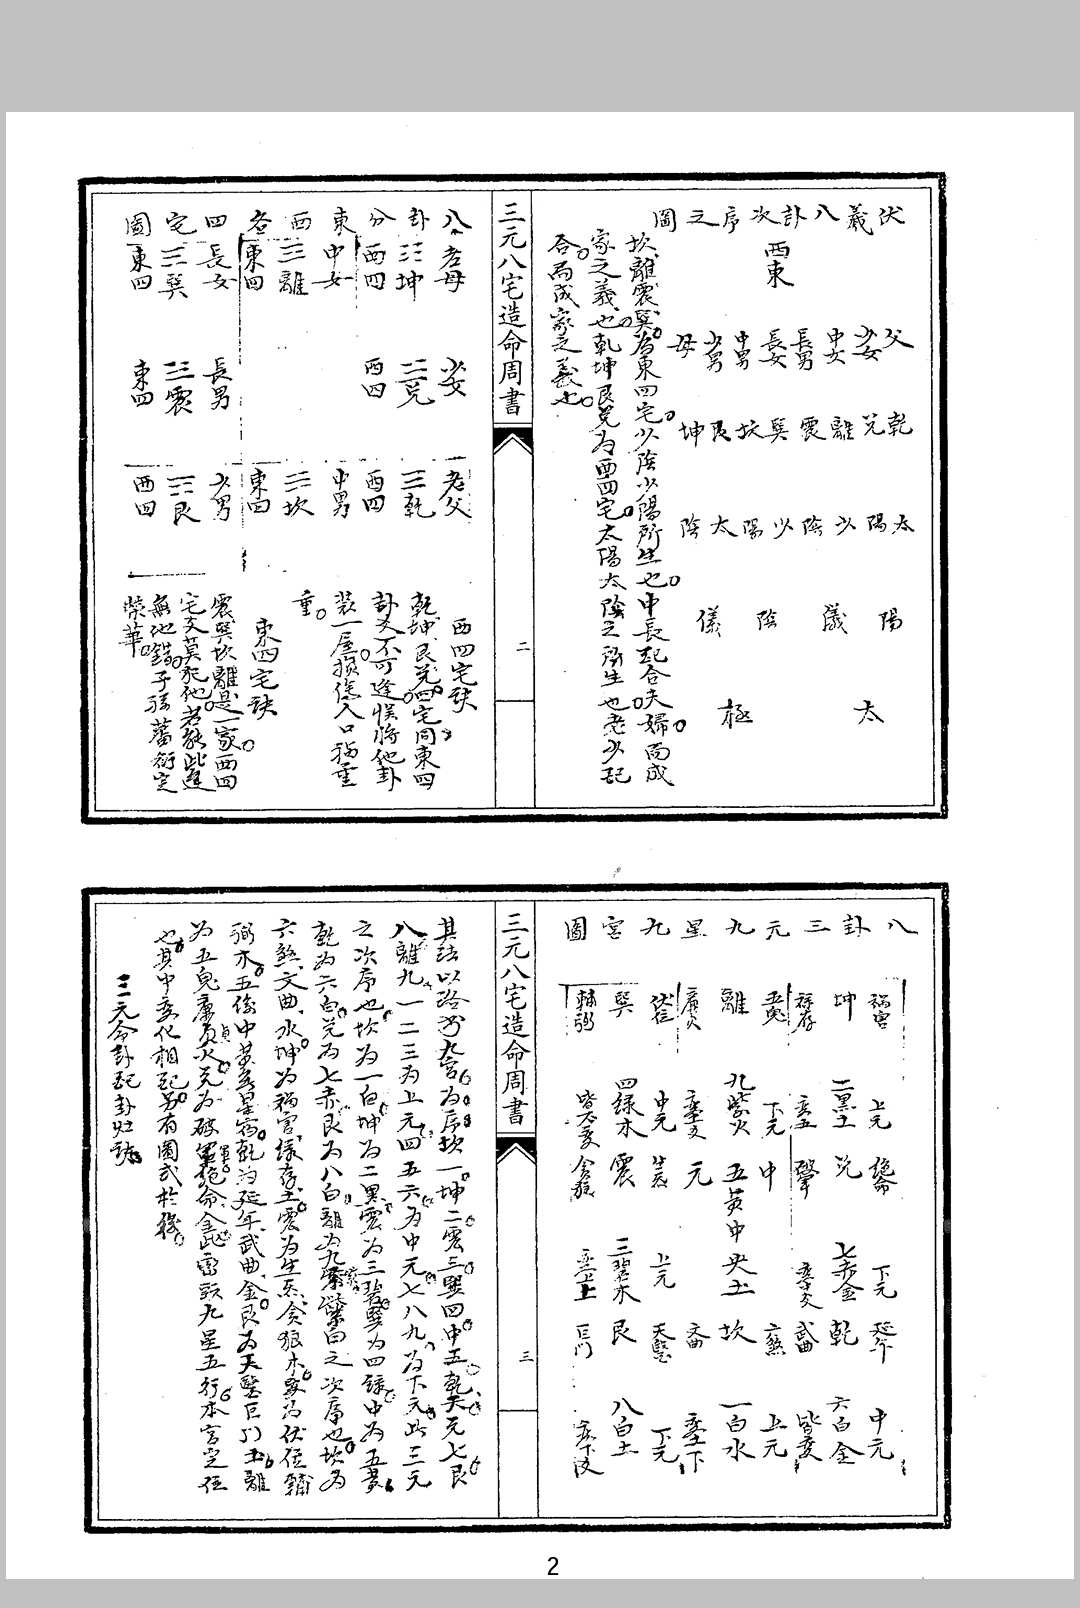 伏羲八卦次序之圖
西東
父 少女 中女 長男 長女 中男 少男 母
乾 兌 離 震 巽 坎 艮 坤
太陽 少陰 少陽 太陰
陽儀 陰儀
太極
坎離震巽為東四宅少陰少陽所生也中長配合夫婦而成
家之義也乾坤艮兌為西四宅太陽太陰之所生也老少配
合而成家之義也
三元八宅造命周書
二
八卦分東西各四宅圖
老母 少女 老父
坤 兌 乾
西四 西四 西四
中女 中男
離 坎
東四 東四
長女 長男 少男
巽 震 艮
東四 東四 西四
西四宅訣
乾坤艮兌四宅同東四
卦爻不可逢悮將他卦
装一屋損傷人口禍重
重
東四宅訣
震巽坎離是一家西四
宅爻莫犯他若能此選
無他錯子孫蕃衍定
榮華
八卦三元九星九宮圖
禍害 上元 絕命 下元 延年 中元
坤 二黑土 兌 七赤金 乾 六白金
祿存 武曲 皆变
五鬼 下元 中 六煞 上元
離 九紫火 五黃中央土 坎 一白水
廉火 元 文曲
中元 上元 天醫 下元
巽 四綠木 震 三碧木 艮 八白土
輔弼 皆不变 貪狼 巨門
三元八宅造命周書
三
其法以洛書九宮為序坎一坤二震三巽四中五乾六兌七艮
八離九一二三為上元四五六為中元七八九為下元此三元
之次序也坎為一白坤為二黑震為三碧巽為四綠中為五黃
乾為六白兌為七赤艮為八白離為九紫白之次序也坎為
六煞文曲水坤為禍害祿存土震為生炁貪狼木巽為伏位輔
弼木五係中黃無星宿乾為延年武曲金艮為天醫巨門土離
為五鬼廉貞火兌為破軍絕命金此雷頭九星五行本宮定位
也其中变化相配另有圖式於後
三元命卦配卦灶訣
2